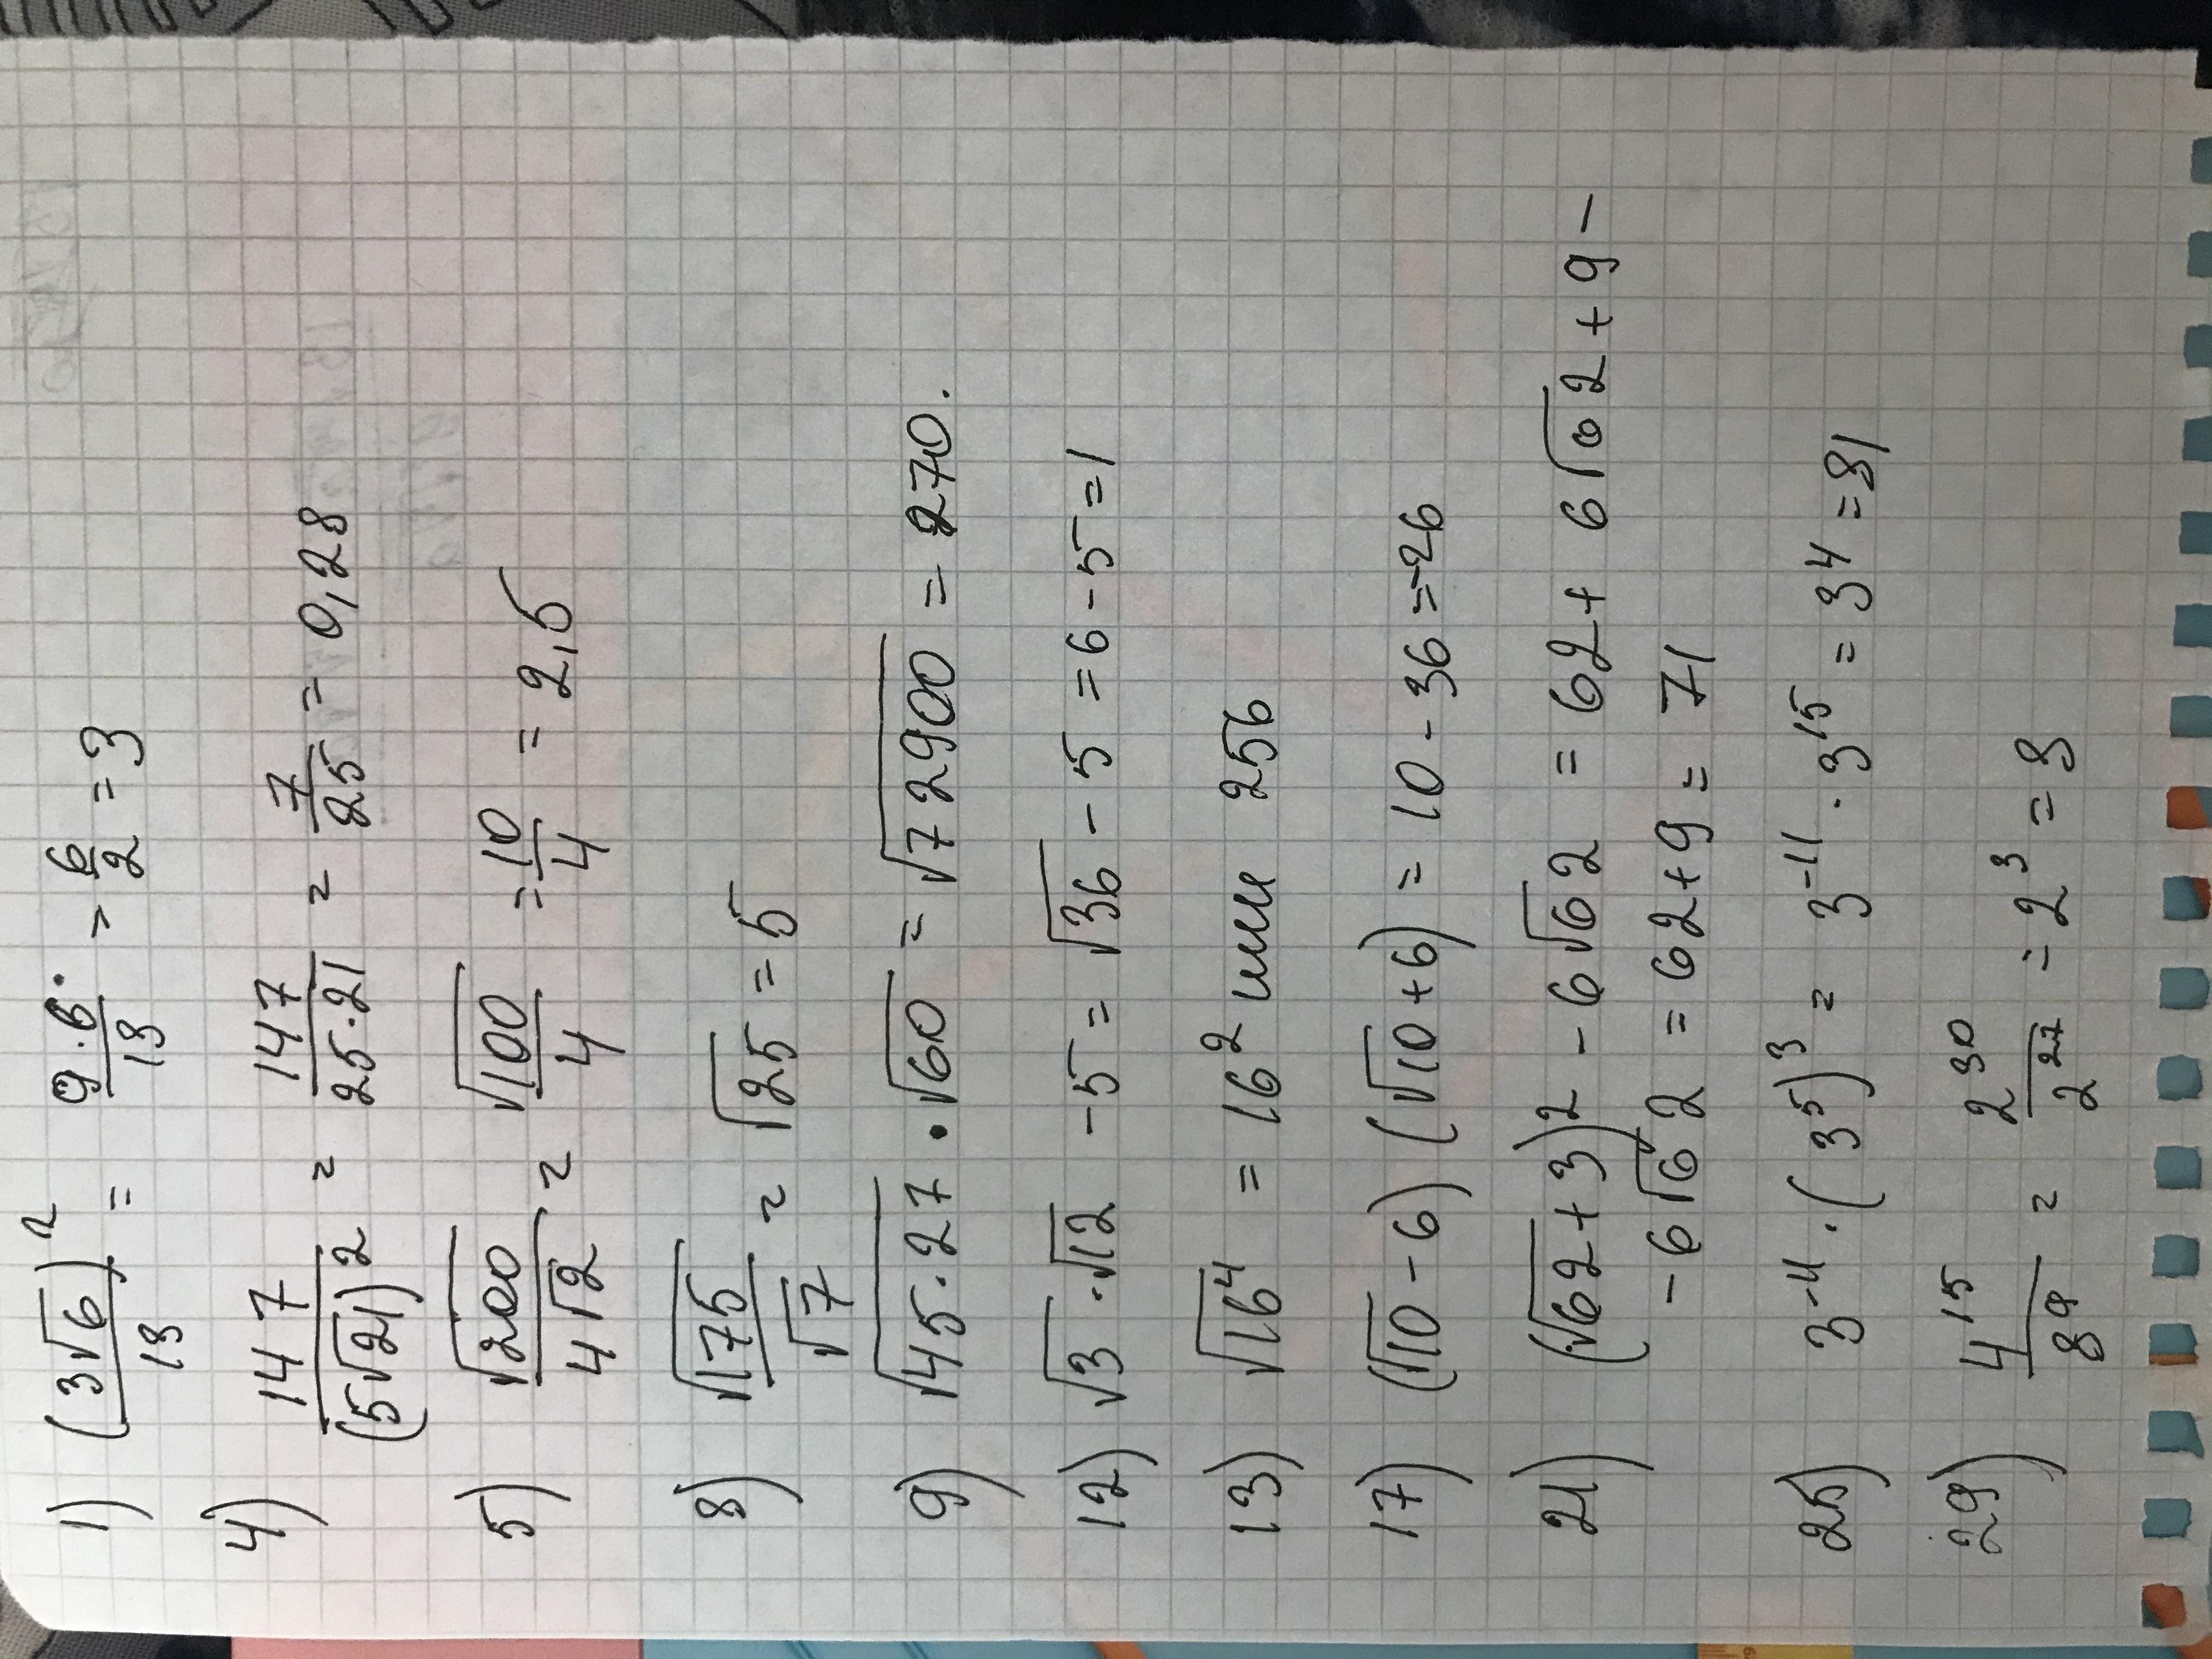 1) (3√6)²/18 = 9·6/18 = 6/2 = 3
4) 147/(5√21)² = 147/25·21 = 7/25 = 0,28
5) √200/4√2 = √100/4 = 10/4 = 2,5
8) √175/√7 = √25 = 5
9) √45·27 · √60 = √72900 = 270.
12) √3 · √12 - 5 = √36 - 5 = 6 - 5 = 1
13) √16⁴ = 16² или 256
17) (√10 - 6) (√10 + 6) = 10 - 36 = -26
21) (√62 + 3)² - 6√62 = 62 + 6√62 + 9 -
- 6√62 = 62 + 9 = 71
25) 3⁻¹¹ · (3⁵)³ = 3⁻¹¹ · 3¹⁵ = 3⁴ = 81
29) 4¹⁵/8⁹ = 2³⁰/2²⁷ = 2³ = 8